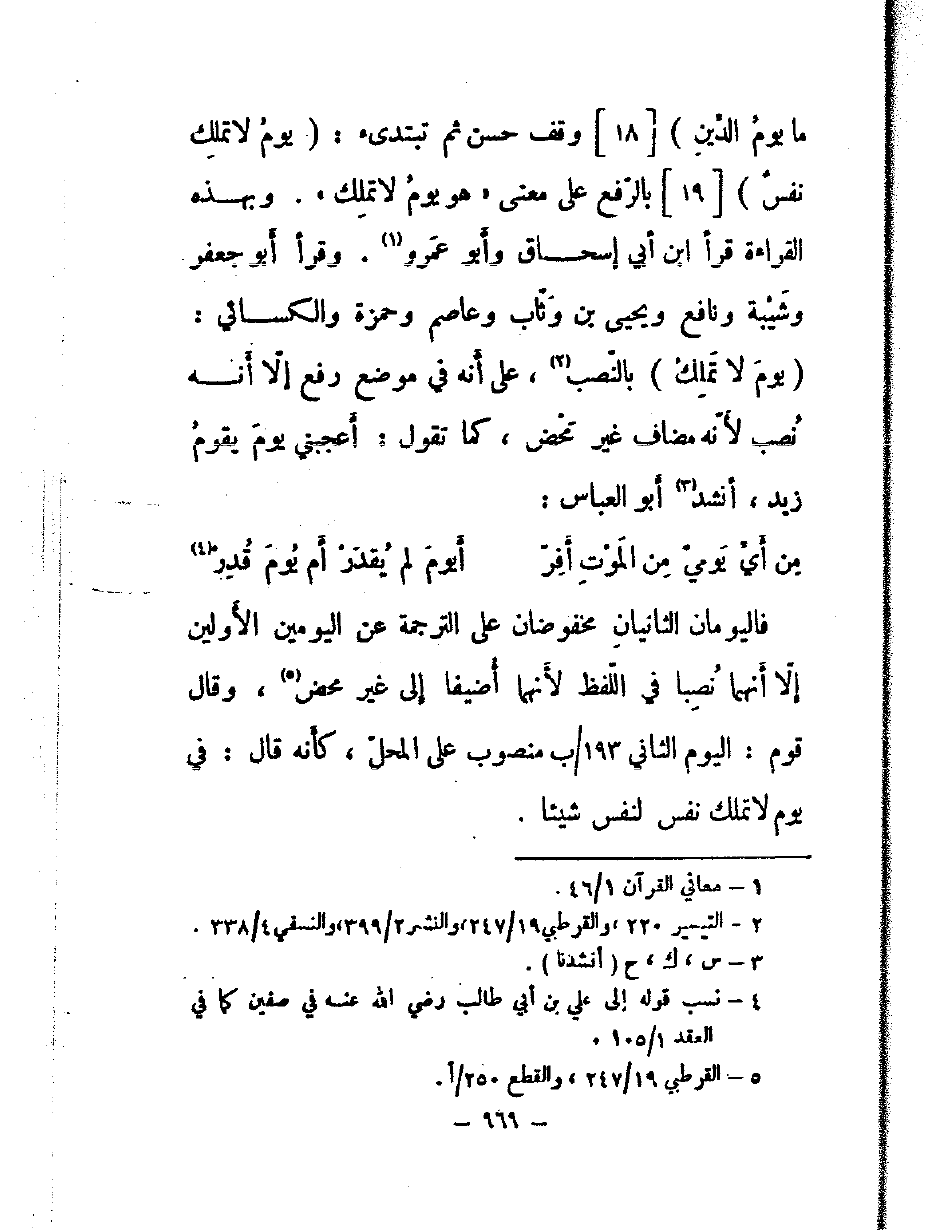 ما يومُ الدّينِ ) [ ١٨ ] وقف حسن ثم تبتدىء : ( يومُ لا تملِك
نفسٌ ) [ ١٩ ] بالرّفع على معنى « هو يومُ لا تملِك » . وبهـــذه
القراءة قرأ ابن أبي إسحـــاق وأَبو عَمرو(١) . وقرأ أَبو جعفر
وشَيْبة ونافع ويحيى بن وَثّاب وعاصم وحمزة والكســـائي :
( يومَ لا تَملِكُ ) بالنّصب(٢) ، على أَنه في موضع رفع إلّا أَنـــه
نُصب لأَنّه مضاف غير مَحْض ، كما تقول : أَعجبني يومَ يقومُ
زيد ، أنشد(٣) أَبو العباس :
مِن أَيْ يَوميْ مِن المَوْتِ أَفِرّ أَيومَ لم يُقدَرْ أم يُومَ قُدِرْ(٤)
فاليومان الثانيانِ مخفوضان على الترجمة عن اليومين الأَولين
إلّا أَنهما نُصِبا في اللّفظ لأَنهما أُضيفا إلى غير محض(٥) ، وقال
قوم : اليوم الثاني ١٩٣/ب منصوب على المحلّ ، كأَنه قال : في
يوم لا تملك نفس لنفس شيئا .
١ – معاني القرآن ٤٦/١ .
٢ – التيسير ٢٢٠ ، والقرطبي ٢٤٧/١٩ ، والنشر ٣٩٩/٢ ، والنسفي ٣٣٨/٤ .
٣ – س ، ك ، ح ( أنشدنا ) .
٤ – نسب قوله إلى علي بن أبي طالب رضي الله عنـــه في صفين كما في
العقد ١٠٥/١ .
٥ – القرطبي ٢٤٧/١٩ ، والقطع ٢٥٠/أ .
– ٩٦٩ –